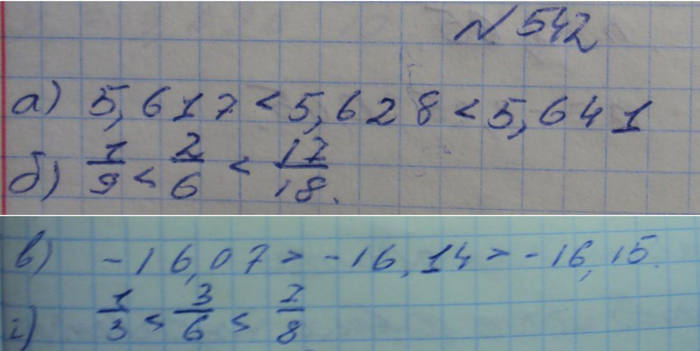 № 542
а) 5,617 < 5,628 < 5,641
б) 1/9 < 2/6 < 17/18.
в) -16,07 > -16,14 > -16,15.
г) 1/3 < 3/6 < 7/8